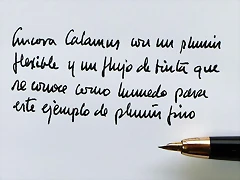 Ancora Calamus con un plumín
flexible y un flujo de tinta que
se conoce como húmedo para
este ejemplo de plumín fino